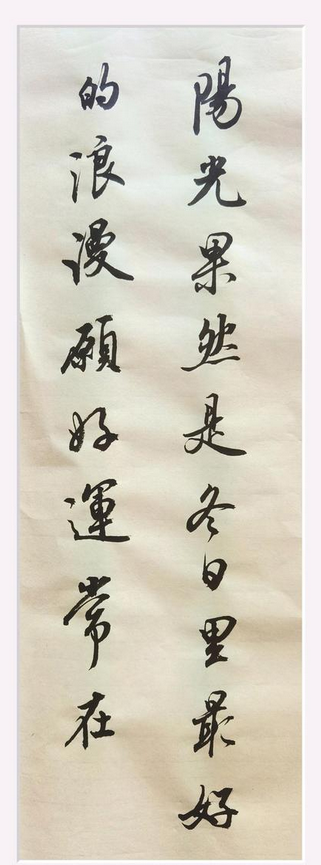 陽光果然是冬日里最好
的浪漫願好運常在